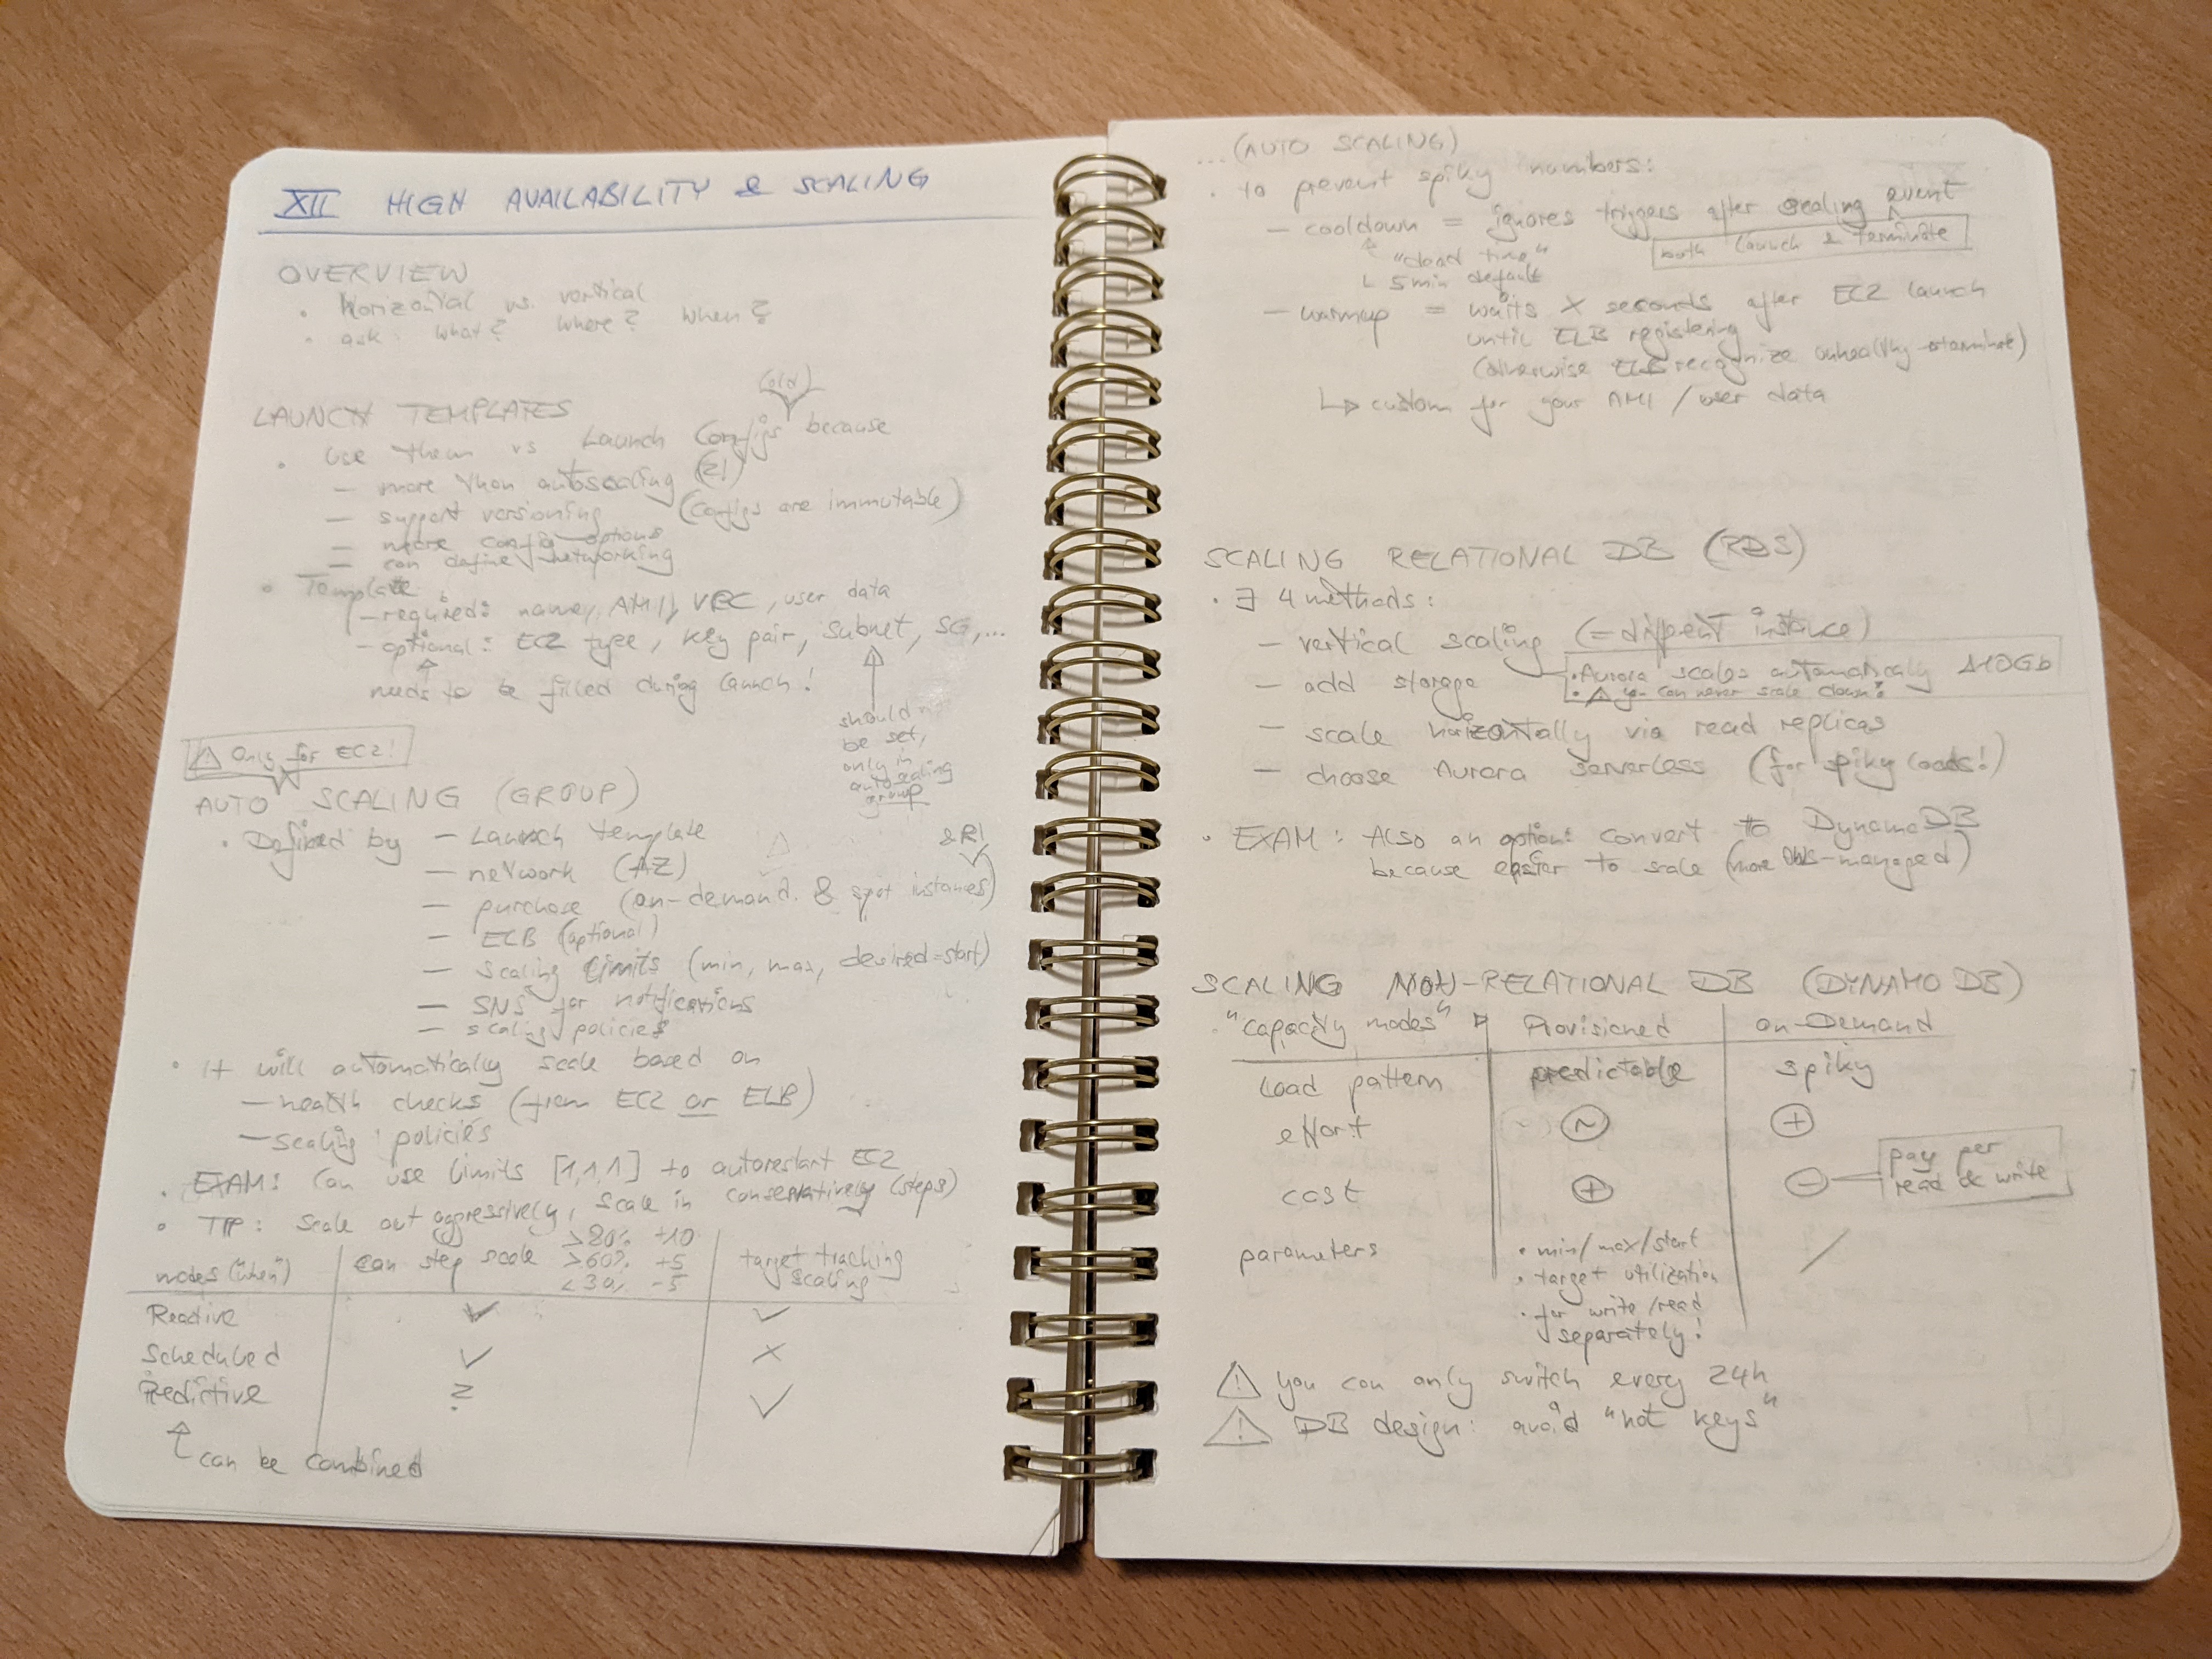 XII HIGH AVAILABILITY & SCALING
OVERVIEW
• Horizontal vs. vertical
• ask: what? where? when?
(old)
LAUNCH TEMPLATES
• Use them vs Launch Configs because
— more than autoscaling
— support versioning (Configs are immutable)
— more config options
— can define networking
• Template
— required: name, AMI, VPC, user data
— optional: EC2 type, key pair, subnet, SG, ...
needs to be filled during launch!
should
be set,
only in
autoscaling
group
⚠ Only for EC2!
AUTO SCALING (GROUP)
• Defined by — Launch template
— network (AZ)
& RI
— purchase (on-demand & spot instances)
— ELB (optional)
— scaling limits (min, max, desired=start)
— SNS for notifications
— scaling policies
• It will automatically scale based on
— health checks (from EC2 or ELB)
— scaling policies
• EXAM: Can use limits [1,1,1] to autorestart EC2
• TIP: Scale out aggressively, scale in conservatively (steps)
modes ("when") | can step scale | target tracking scaling
>80% +10
>60% +5
<30% -5
Reactive ✓ ✓
Scheduled ✓ ×
Predictive ? ✓
↑ can be combined
... (AUTO SCALING)
• to prevent spiky numbers:
— cooldown = ignores triggers after scaling event
both launch & terminate
"dead time"
↳ 5 min default
— warmup = waits X seconds after EC2 launch
until ELB registering
(otherwise ELB recognize unhealthy → terminate)
↳ custom for your AMI / user data
SCALING RELATIONAL DB (RDS)
• ∃ 4 methods:
— vertical scaling (= different instance)
— add storage
• Aurora scales automaticaly
• ⚠ you can never scale down!
— scale horizontally via read replicas
— choose Aurora serverless (for spiky loads!)
• EXAM: Also an option: convert to DynamoDB
because easier to scale (more AWS-managed)
SCALING NON-RELATIONAL DB (DYNAMO DB)
"capacity modes" ▷ | Provisioned | on-Demand
Load pattern predictable spiky
effort ~ +
cost + − pay per
read & write
parameters • min/max/start /
• target utilization
• for write/read
separately!
⚠ you can only switch every 24h
⚠ DB design: avoid "hot keys"